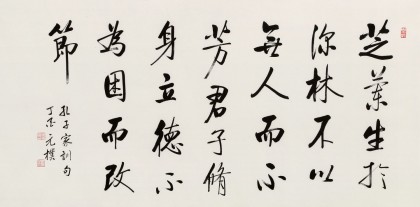 芝蘭生於
深林不以
無人而不
芳君子脩
身立德不
為困而改
節
孔子家訓句
丁酉元樸